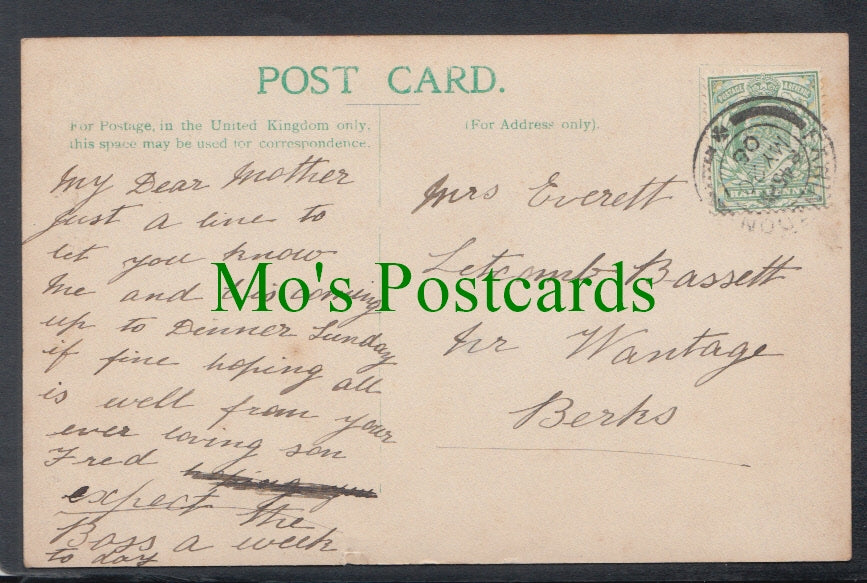 POST CARD.
For Postage, in the United Kingdom only,
this space may be used for correspondence.
(For Address only).
My Dear Mother
Just a line to
let you know
Me and coming
up to Denner Sunday
if fine hoping all
is well from your
ever loving son
Fred
expect the
Boss a week
to day
Mrs Everett
Letcomb Bassett
Nr Wantage
Berks
Mo's Postcards
POSTAGE
HALFPENNY
MY
08